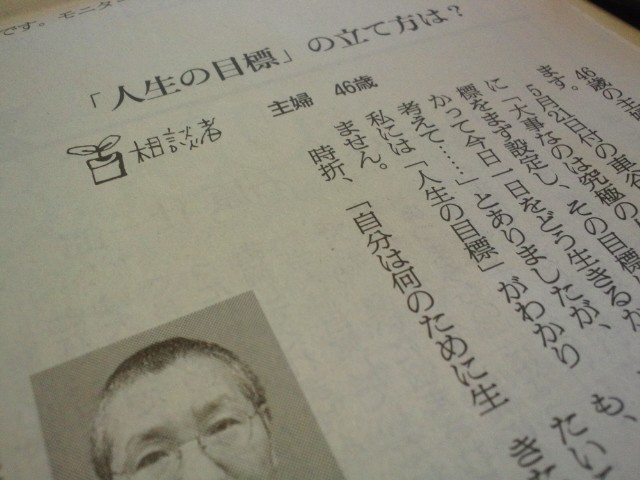 です。モニター
「人生の目標」の立て方は？
相談者
主婦　46歳
46歳の主婦
ます。
5月12日付の車谷
に「大事なのは究極の
標をまず設定し、その目標に
かって今日一日をどう生きるか
考えて……」とありましたが、
私には「人生の目標」がわかり
ません。
時折、「自分は何のために生
も、
たい
き